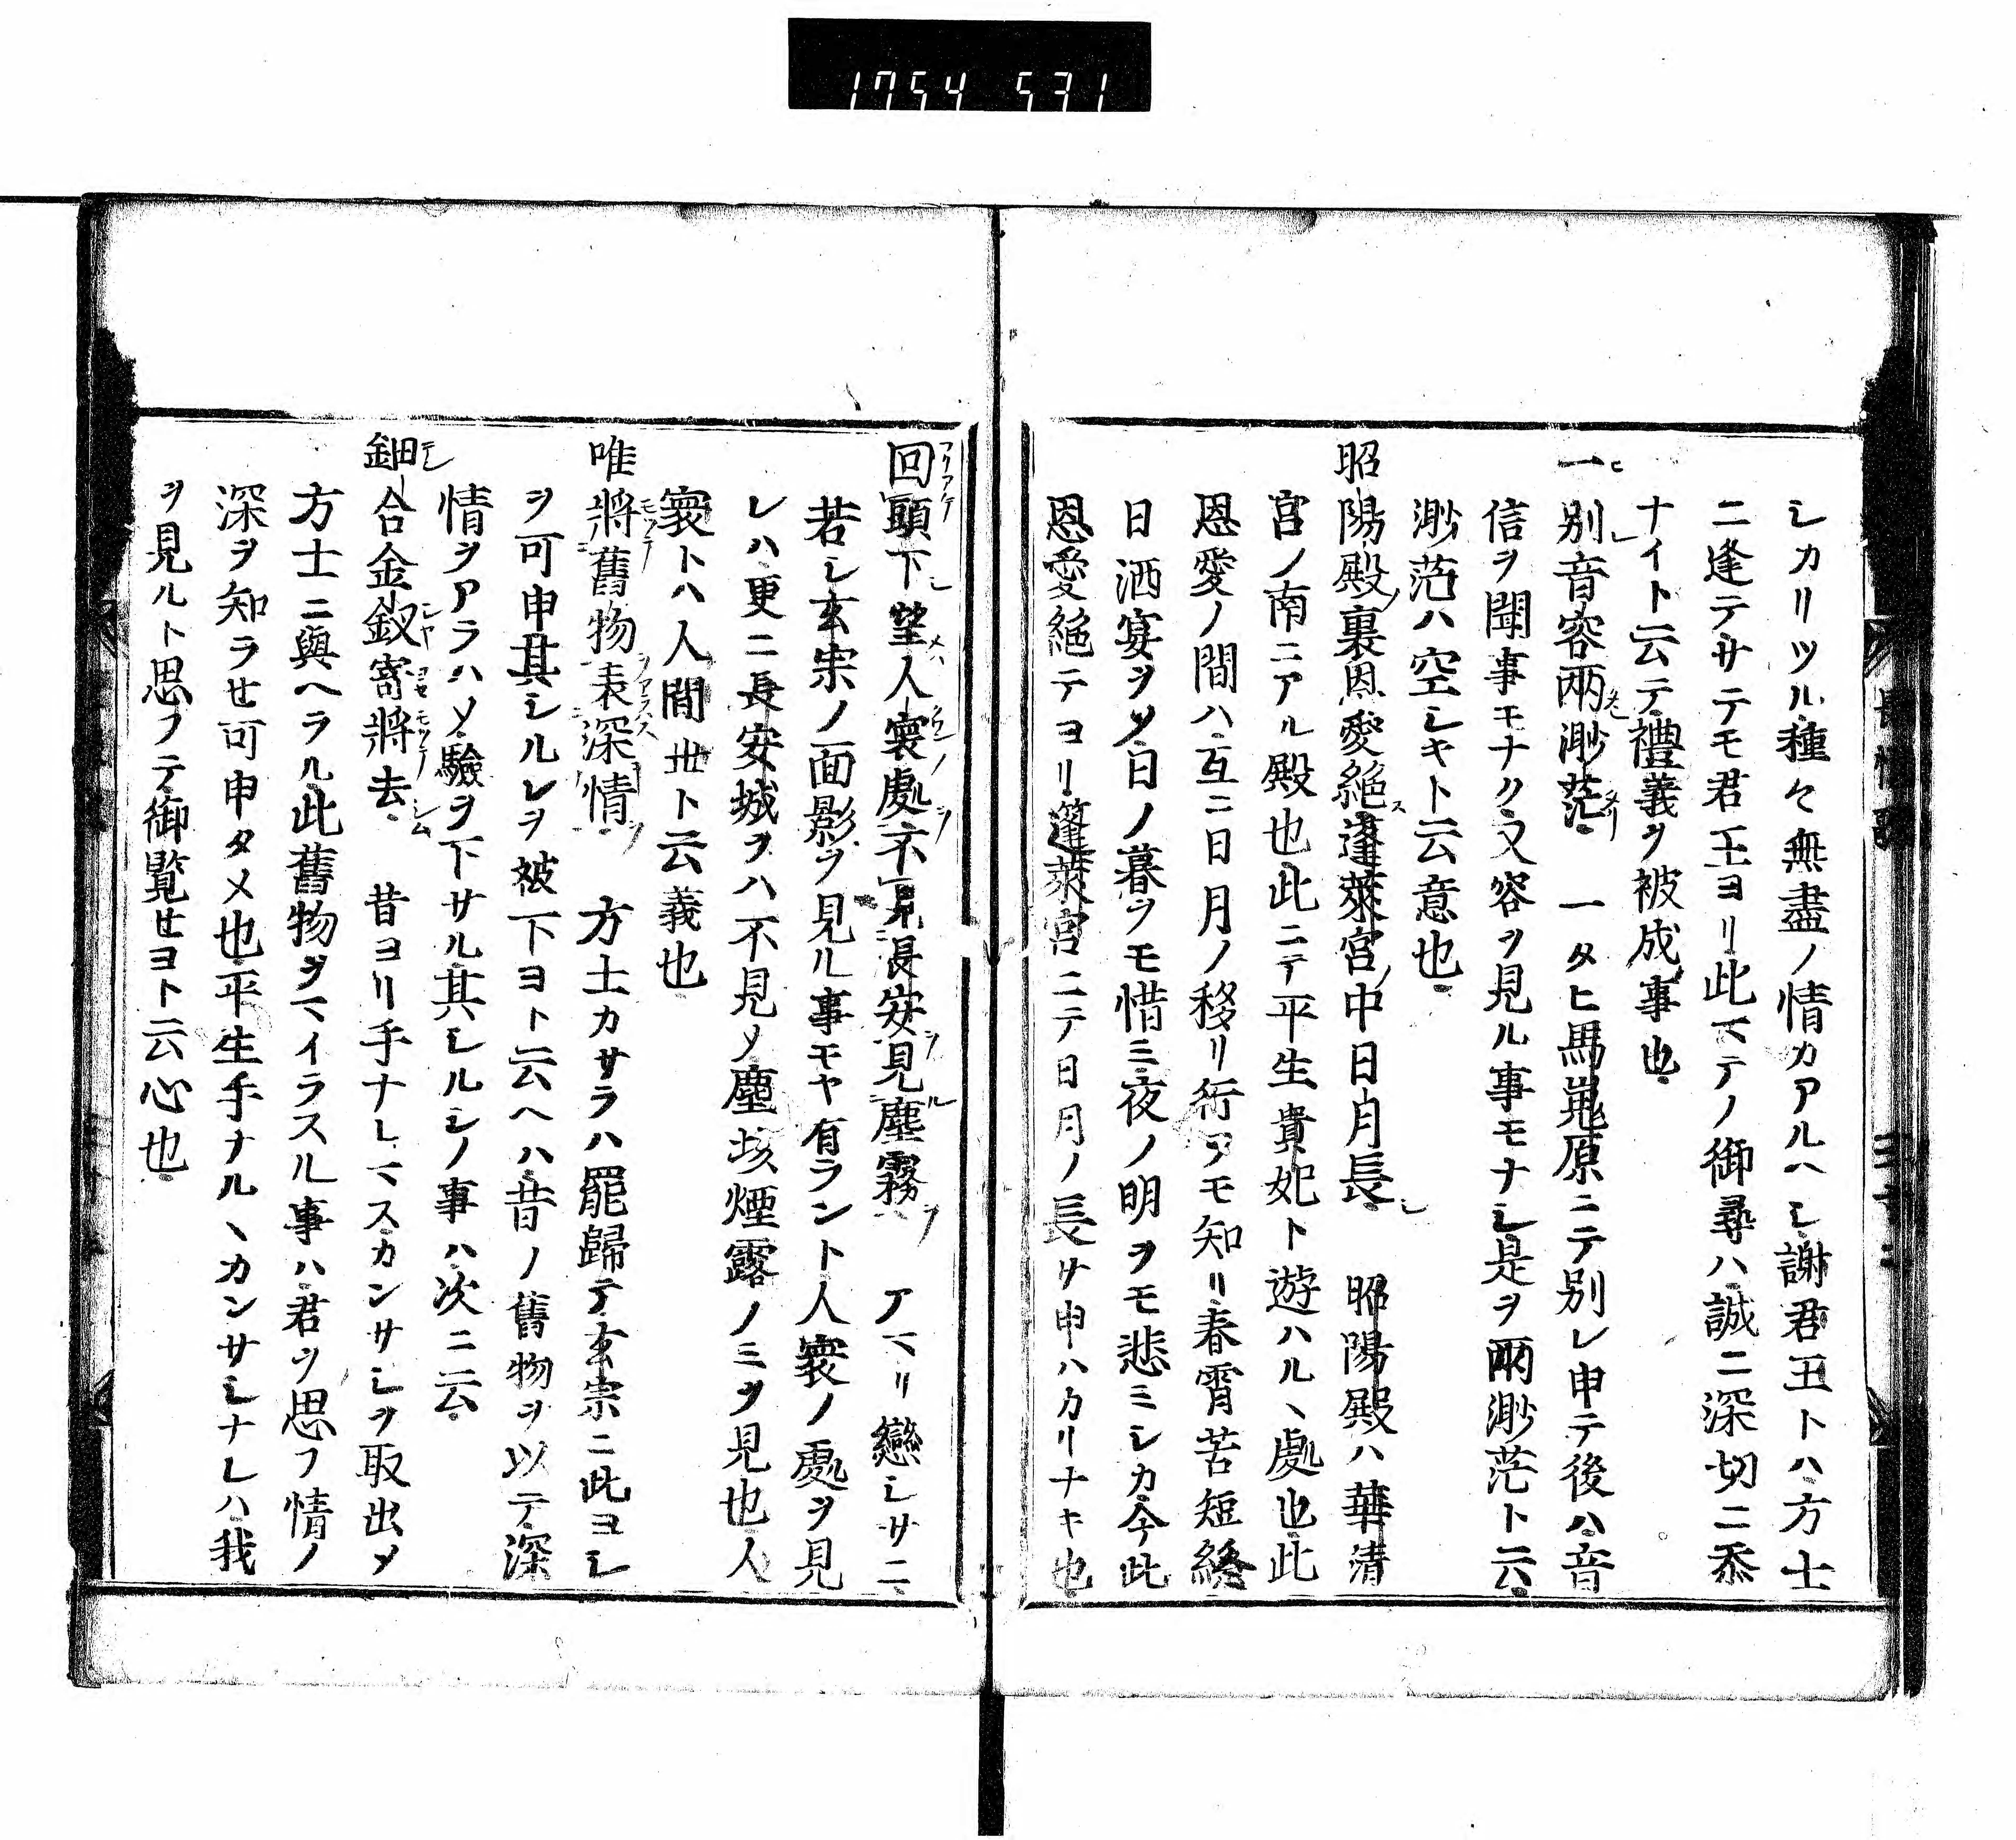 1754 531
シカリツル種々無盡ノ情カアルヘシ謝君王トハ方士
ニ逢テサテモ君王ヨリ此マテノ御尋ハ誠ニ深切ニ忝
ナイト云テ禮義ヲ被成事也
一別音容兩渺茫 一タヒ馬嵬原ニテ別レ申テ後ハ音
信ヲ聞事モナク又容ヲ見ル事モナシ是ヲ兩渺茫ト云
渺茫ハ空シキト云意也
昭陽殿裏恩愛絶蓬萊宮中日月長 昭陽殿ハ華清
宮ノ南ニアル殿也此ニテ平生貴妃ト遊ハルヽ處也此
恩愛ノ間ハ互ニ日月ノ移リ行ヲモ知リ春霄苦短終
日酒宴ヲメ日ノ暮ヲモ惜ミ夜ノ明ヲモ悲ミシカ今此
恩愛絶テヨリ蓬萊宮ニテ日月ノ長サ申ハカリナキ也
回頭下望人寰處不見長安見塵霧 アマリ戀シサニ
若シ玄宗ノ面影ヲ見ル事モヤ有ラント人寰ノ處ヲ見
レハ更ニ長安城ヲハ不見メ塵垓煙露ノミヲ見也人
寰トハ人間世ト云義也
唯將舊物表深情 方士カサラハ罷歸テ玄宗ニ此ヨシ
ヲ可申其シルシヲ被下ヨト云ヘハ昔ノ舊物ヲ以テ深
情ヲアラハメ驗ヲ下サル其シルシノ事ハ次ニ云
鈿合金釵寄將去 昔ヨリ手ナレマスカンサシヲ取出メ
方士ニ與ヘラル此舊物ヲマイラスル事ハ君ヲ思フ情ノ
深ヲ知ラセ可申タメ也平生手ナルヽカンサシナレハ我
ヲ見ルト思フテ御覧セヨト云心也